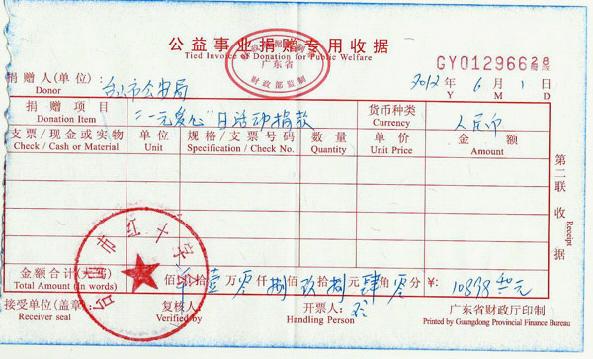 公益事业捐赠专用收据
Tied Invoice of Donation for Public Welfare
广东省
财政部监制
GY01296628
捐赠人(单位): 台山市公安局
Donor
2012年 6月 1日
Y M D
捐赠项目 “一元爱心”日活动捐款 货币种类 人民币
Donation Item Currency
支票/现金或实物 单位 规格/支票号码 数量 单价 金额
Check / Cash or Material Unit Specification / Check No. Quantity Unit Price Amount
第二联 收据
Receipt
台山市红十字会
金额合计(大写) 佰 拾壹万零仟捌佰玖拾捌元肆角零分 ¥: 元
Total Amount (In words)
接受单位(盖章): 复核人: 开票人: 广东省财政厅印制
Receiver seal Verified by Handling Person Printed by Guangdong Provincial Finance Bureau